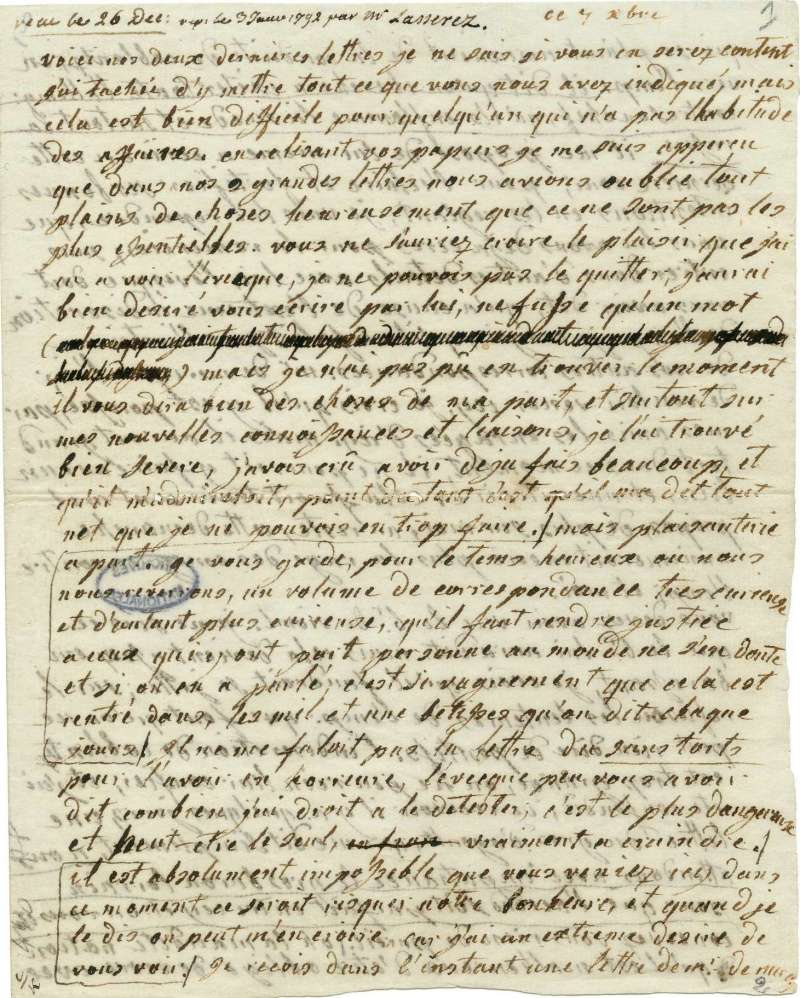 recue le 26 Dec: rep. le 3 Janv 1792 par Mr Lasserez. ce 7 xbre 1
voici nos deux dernieres lettres je ne sais si vous en serez content
j'ai tachée d'y mettre tout ce que vous nous avez indiqué, mais
cela est bien difficile pour quelqu'un qui n'a pas l'habitude
des affaires. en relisant vos papiers je me suis apperçu
que dans nos 2 grandes lettres nous avions oublié tout
plains de choses heureusement que ce ne sont pas les
plus essentielles. vous ne sauriez croire le plaisir que j'ai
eu a voir l'evecque, je ne pouvois pas le quitter, j'aurai
bien desiré vous ecrire par lui, ne fusse qu'un mot
(
) mais je n'ai pas pû en trouver le moment
il vous dira bien des choses de ma part, et surtout sur
mes nouvelles connoissances et liaisons, je l'ai trouvé
bien severe, j'avois crû avoir deja fais beaucoup, et
qu'il m'admireroit, point du tout c'est qu'il m'a dit tout
net que je ne pouvois en trop faire./ mais plaisanterie
a part. je vous garde, pour le tems heureux ou nous
nous reverrons, un volume de correspondance tres curieuse
et d'autant plus curieuse, qu'il faut rendre justice
a ceux qui y ont part personne au monde ne s'en doute
et si on en a parlé, c'est si vaguement que cela est
rentré dans, les mil et une betises qu'on dit chaque
jours/ il ne me faloit pas la lettre du sans torts
pour l'avoir en horreure, l'evecque peu vous avoir
dit combien j'ai droit a le detester, c'est le plus dangereuse
et peut-etre le seul, vraiment a craindre./
il est absolument impossible que vous veniez ici dans
ce moment ce seroit risquer notre bonheure, et quand je
le dis on peut m'en croire car j'ai un extreme desire de
vous voir./ je recois dans l'instant une lettre de mr. de